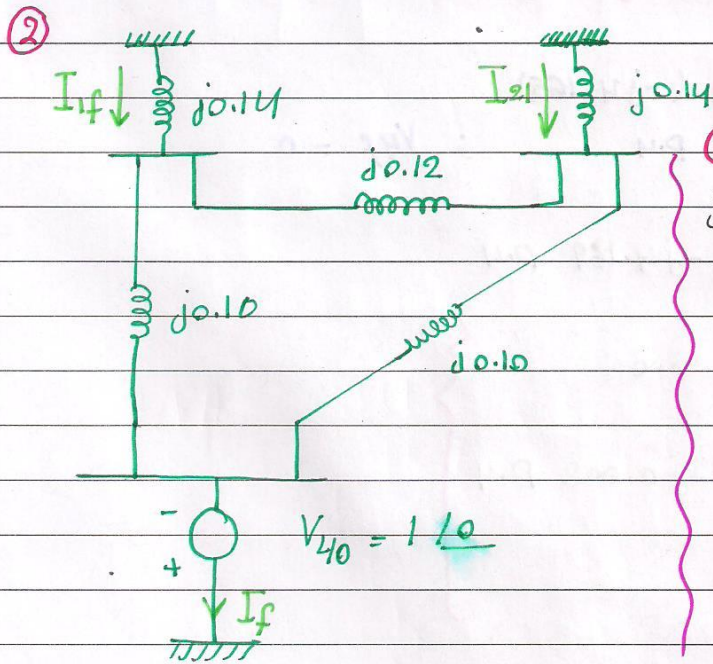 ②
I1f ↓ j0.14
I21 ↓ j0.14
j0.12
j0.10
j0.10
-
V40 = 1 ∠0
+
If